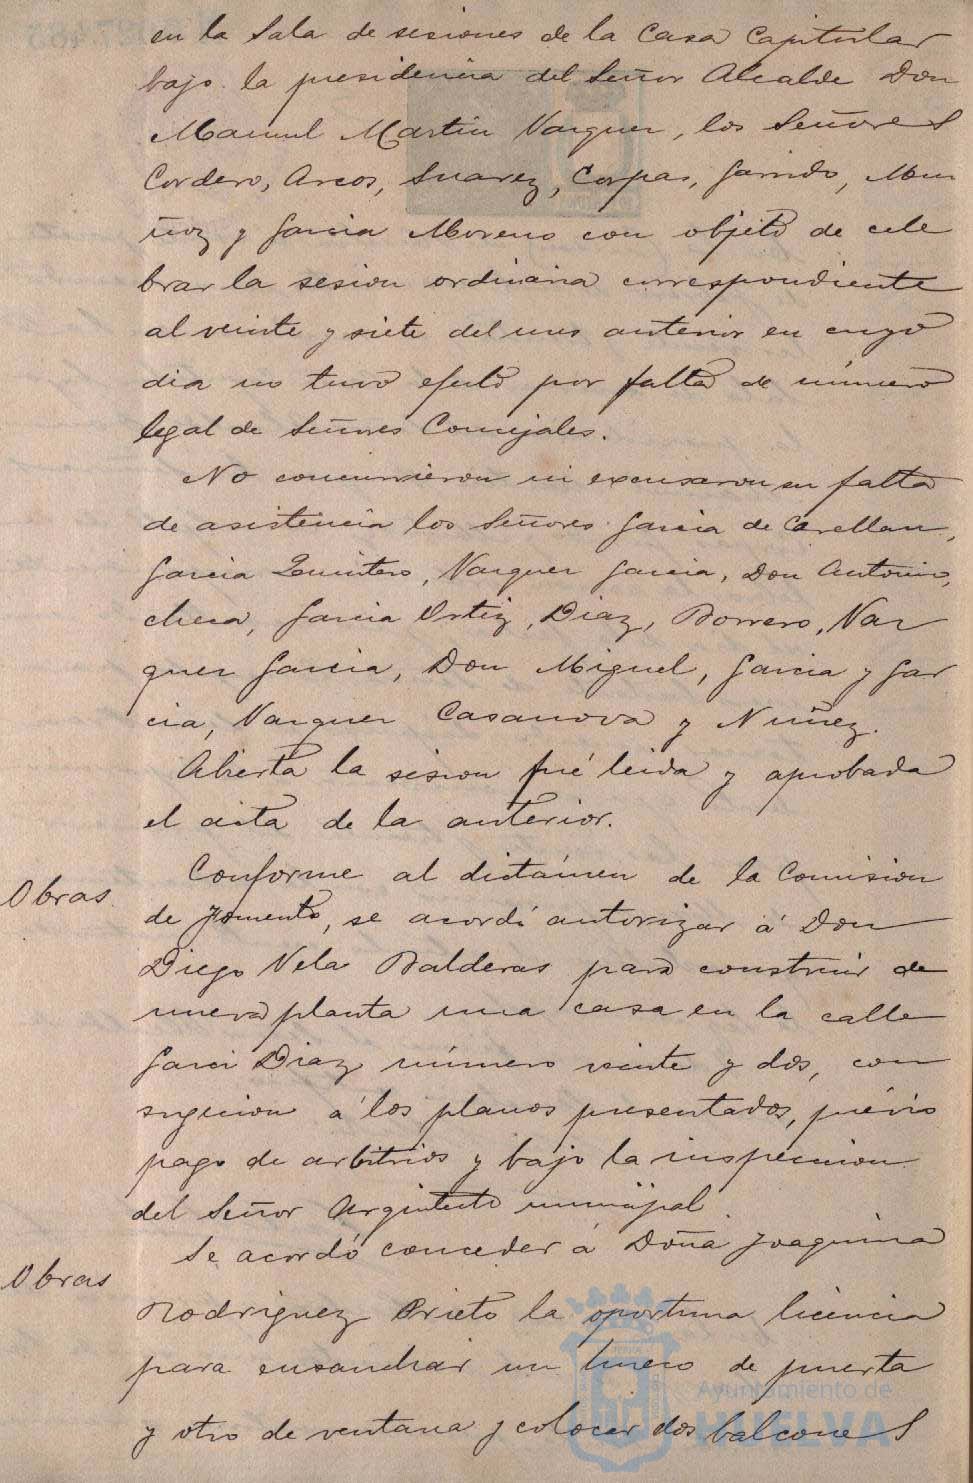 en la Sala de sesiones de la Casa Capitular
bajo la presidencia del Señor Alcalde Don
Manuel Martin Vazquez, los Señores
Cordero, Arcos, Suarez, Corpas, Garrido, Mu
ñoz y Garcia Moreno con objeto de cele
brar la sesion ordinaria correspondiente
al veinte y siete del mes anterior en cuyo
dia no tuvo efecto por falta de número
legal de Señores Concejales.
No concurrieron ni excusaron su falta
de asistencia los Señores Garcia de
Garcia Quintero, Vazquez Garcia, Don Antonio,
checa, Garcia Ortiz, Diaz, Borrero, Vaz
quez Garcia, Don Miguel, Garcia y Gar
cia, Vazquez Casanova y Nuñez.
Abierta la sesion fué leida y aprobada
el acta de la anterior.
Obras
Conforme al dictámen de la Comision
de Fomento, se acordó autorizar á Don
Diego Vela Balderas para construir de
nueva planta una casa en la calle
Garci Diaz número veinte y dos, con
sugecion á los planos presentados, prévio
pago de arbitrios y bajo la inspeccion
del Señor Arquitecto municipal.
Obras
Se acordó conceder á Doña Joaquina
Rodriguez Prieto la oportuna licencia
para ensanchar un hueco de puerta
y otro de ventana y colocar dos balcones
Ayuntamiento de
HUELVA